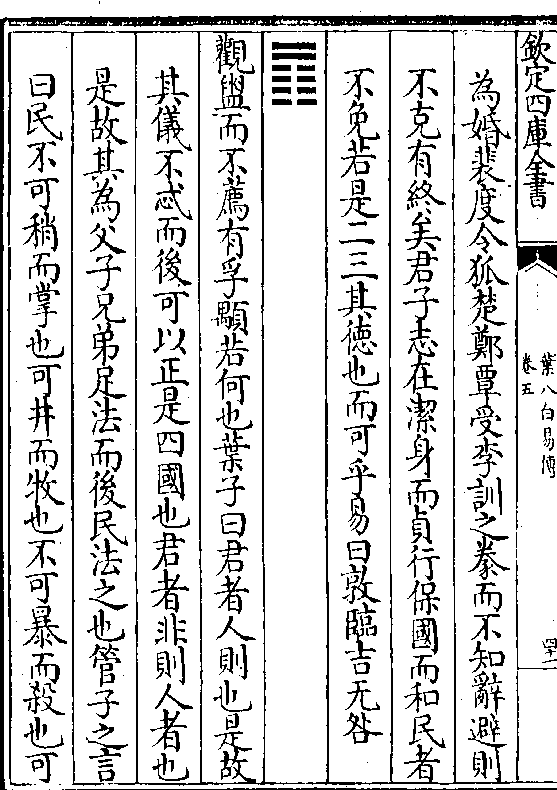 欽定四庫全書
葉八白易傳
卷五
四十二
為婚裴度令狐楚鄭覃受李訓之拳而不知辭避則
不克有終矣君子志在潔身而貞行保國而和民者
不免若是二三其徳也而可乎易曰敦臨吉无咎
䷓
觀盥而不薦有孚顒若何也葉子曰君者人則也是故
其儀不忒而後可以正是四國也君者非則人者也
是故其為父子兄弟足法而後民法之也管子之言
曰民不可稍而掌也可井而牧也不可暴而殺也可